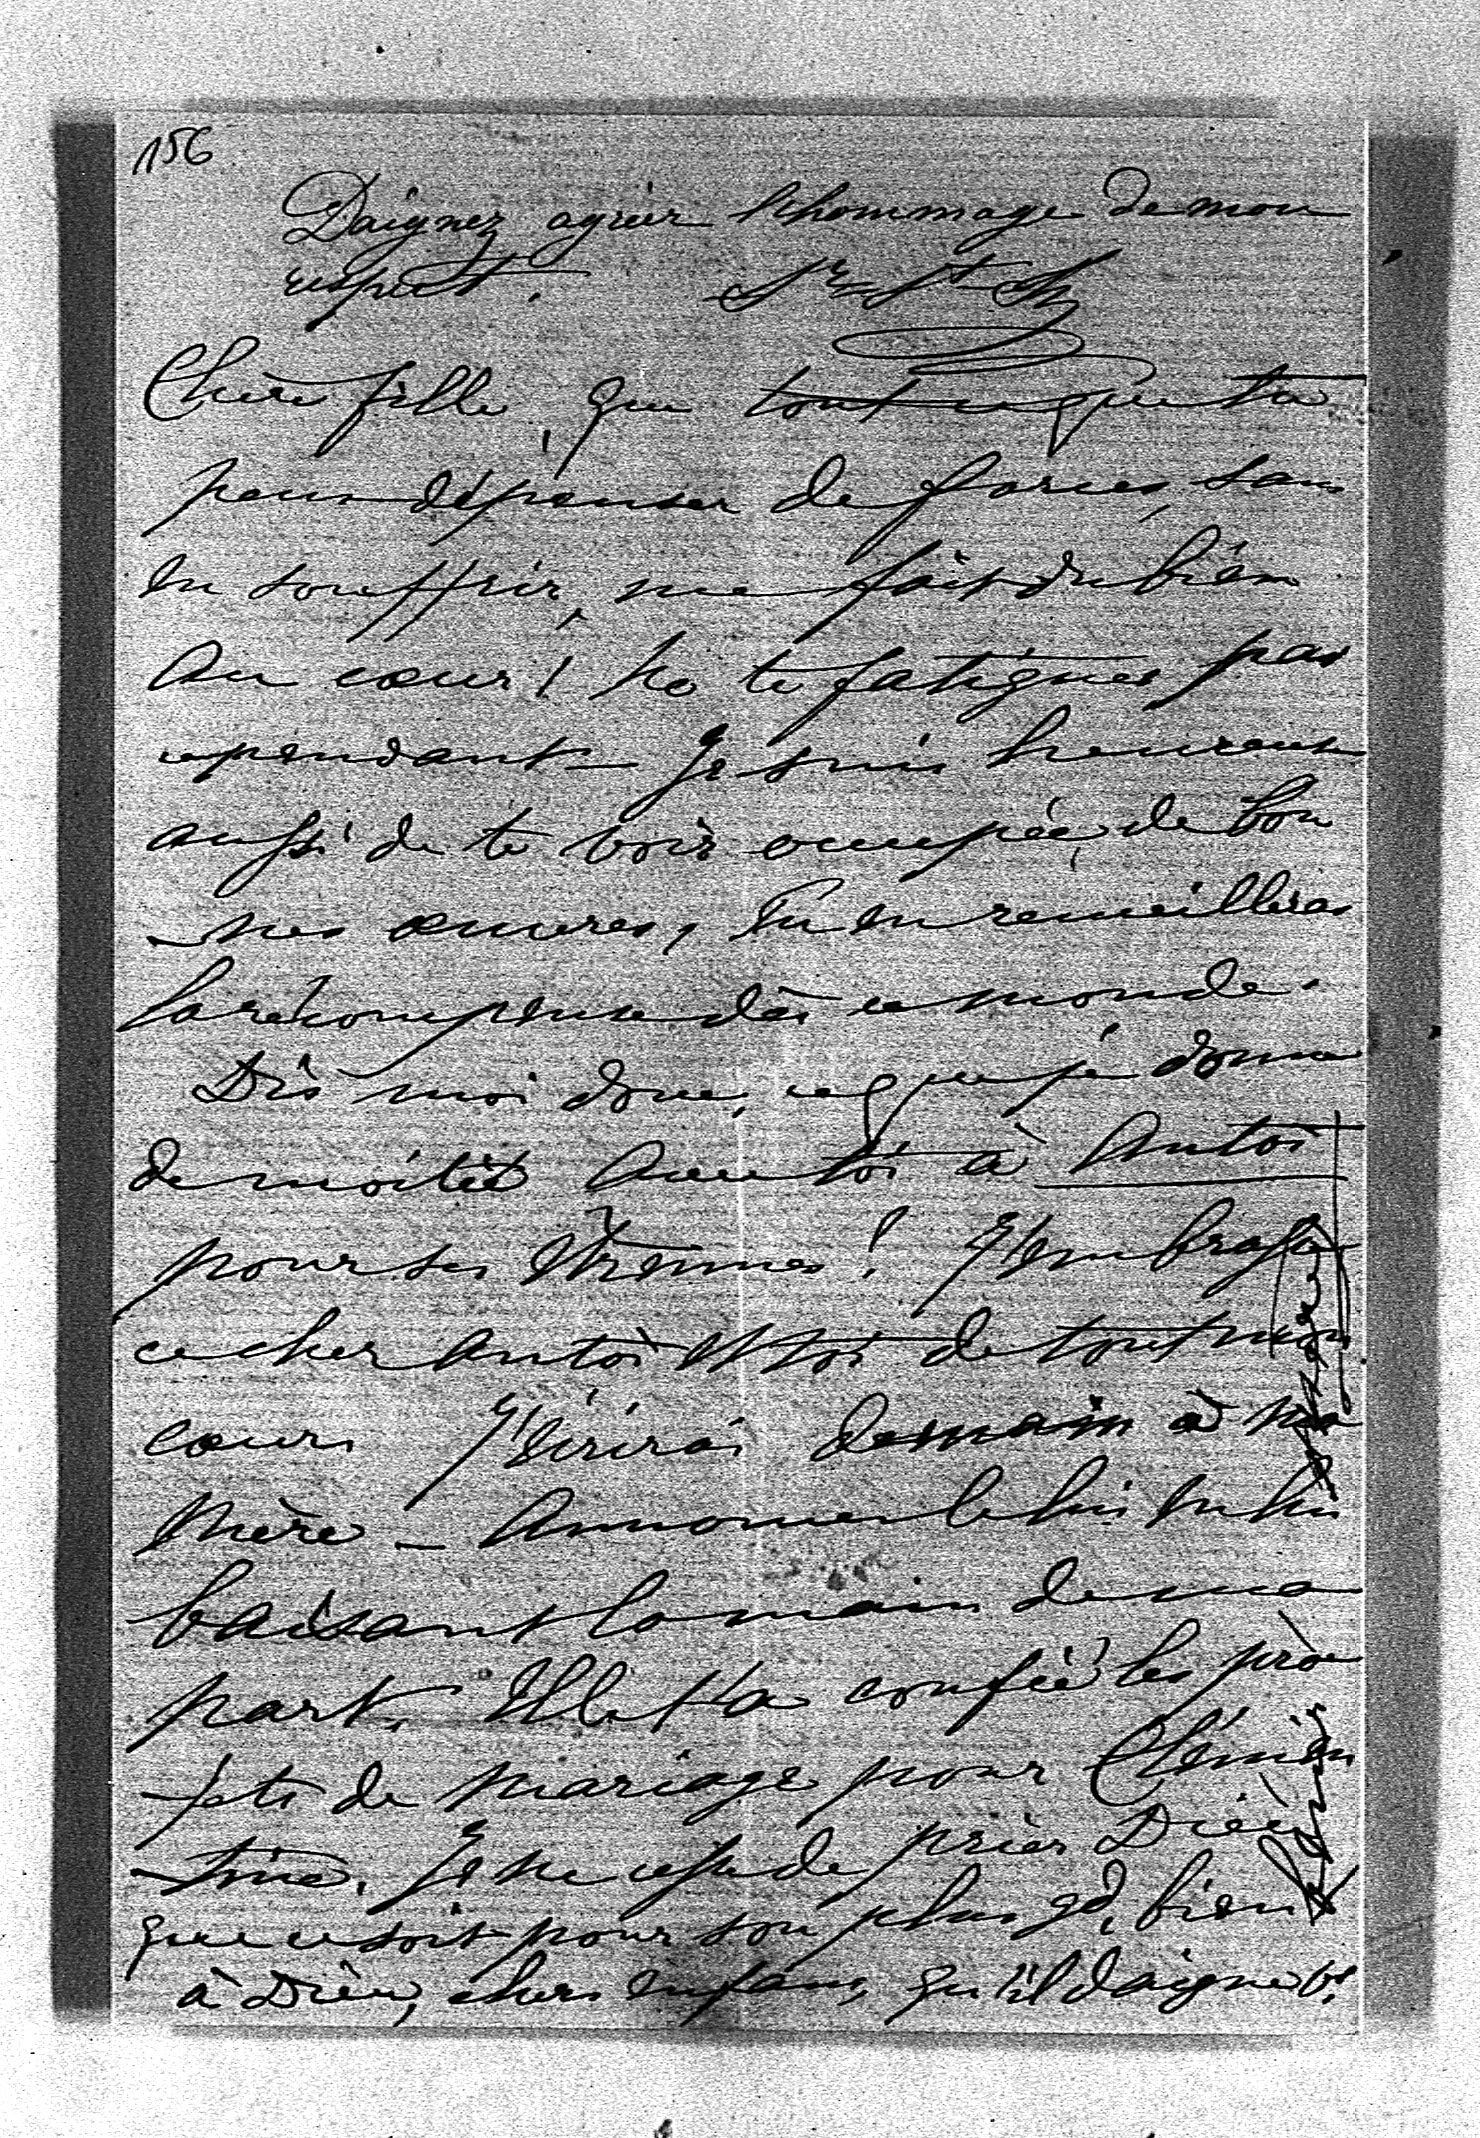 156
Daignez agréer l'hommage de mon
respect. Sr St
Chère fille, que tout ce que tu
peux dépenser de forces, sans
en souffrir, me fait du bien
au cœur! Ne te fatigues pas
cependant — Je suis heureuse
aussi de te voir occupée de bon
-nes œuvres, tu en recueilleras
la récompense dès ce monde.
Dis moi donc, ce que je donne
de moitié avec toi à Antoi
pour ses étrennes! J'embrasse
ce cher Antoi et toi de tout mon
cœur J'écrirai demain à ma
Mère — Annonces le lui en lui
baisant la main de ma
part. Elle t'a confié les pro
-jets de mariage pour Clémen
-tine. Je ne cesse de prier Dieu
que ce soit pour son plus gd bien
à Dieu, chers enfans, qu'il daigne vs